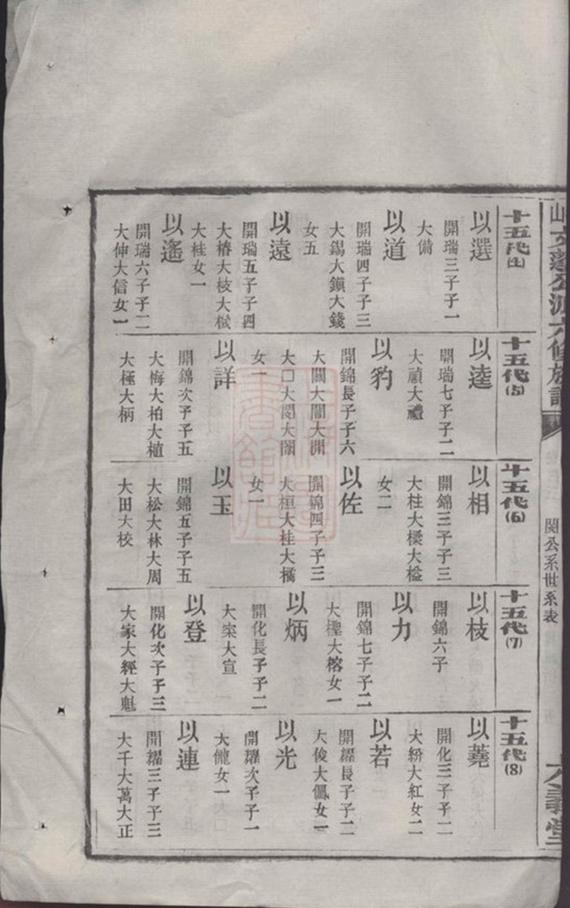 十五代
以選
開瑞三子子一
大備
以道
開瑞四子子三
大錫大鎮大錢
女五
以遠
開瑞五子子四
大椿大枝大棫
大桂女一
以遙
開瑞六子子二
大伸大信女一
十五代(5)
以逵
開瑞七子子二
大禎大禮
以豹
開錦長子子六
大闢大闇大開
大口大閔大閣
女一
以詳
開錦次子子五
大梅大柏大植
大極大柄
十五代(6)
以相
開錦三子子三
大柱大樑大檢
女二
以佐
開錦四子子三
大桓大桂大橘
女一
以玉
開錦五子子五
大松大林大周
大田大校
十五代(7)
以枝
開錦六子
以力
開錦七子子二
大榁大榕女一
以炳
開化長子子二
大榮大宣
以登
開化次子子三
大家大經大魁
十五代(8)
以蕘
開化三子子二
大紛大紅女二
以若
開耀長子子二
大俊大佩女一
以光
開耀次子子一
大龍女一
以連
開耀三子子三
大千大萬大正
公派六修族譜
閔公系世系表
六義堂